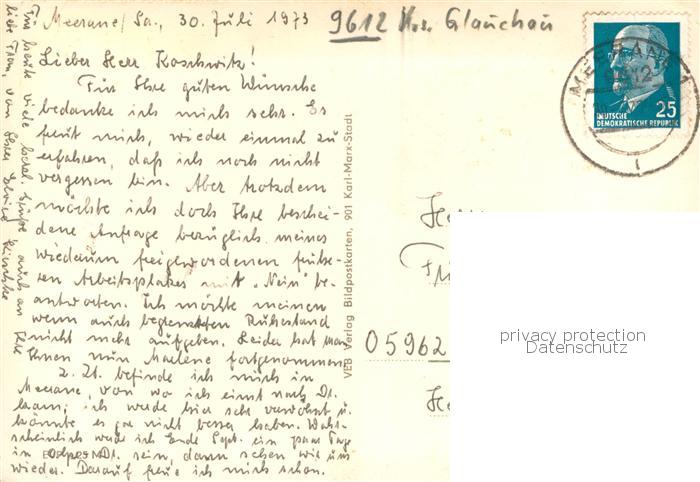 Meerane/Sa., 30. Juli 1973
9612 Krs. Glauchau
Lieber Herr Koschwitz!
Für Ihre guten Wünsche
bedanke ich mich sehr. Es
freut mich, wieder einmal zu
erfahren, daß ich noch nicht
vergessen bin. Aber trotzdem
möchte ich doch Ihre beschei-
dene Anfrage bezüglich meines
wiederum freigewordenen frühe-
ren Arbeitsplatzes mit "Nein" be-
antworten. Ich möchte meinen
wenn auch begrenzten Ruhestand
nicht mehr aufgeben. Leider hat man
Ihnen nun Marlene fortgenommen.
z. Zt. befinde ich mich in
Meerane, von wo ich einst nach
kam; ich werde hier sehr verwöhnt u.
könnte es gar nicht besser haben. Wahr-
scheinlich werde ich Ende Sept. ein paar Tage
in sein, dann sehen wir uns
wieder. Darauf freue ich mich schon.
Für heute viele herzl. Grüße auch an Ihre
liebe Frau, von Ihrer
VEB Verlag Bildpostkarten, 901 Karl-Marx-Stadt
MEERANE 1
9612
DEUTSCHE
DEMOKRATISCHE REPUBLIK
25
05962
privacy protection
Datenschutz